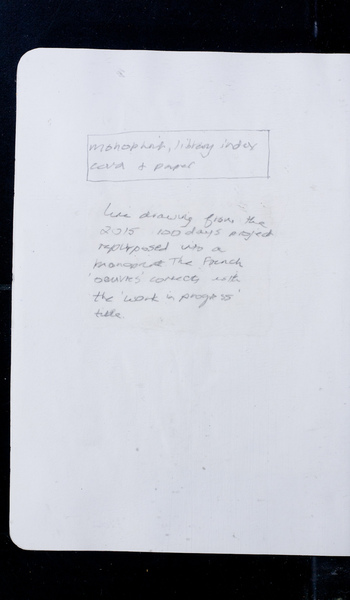 monoprint, library index
card + paper
line drawing from the
2015 100 days project
repurposed into a
monoprint The French
'oeuvres' connects with
the 'work in progress'
title